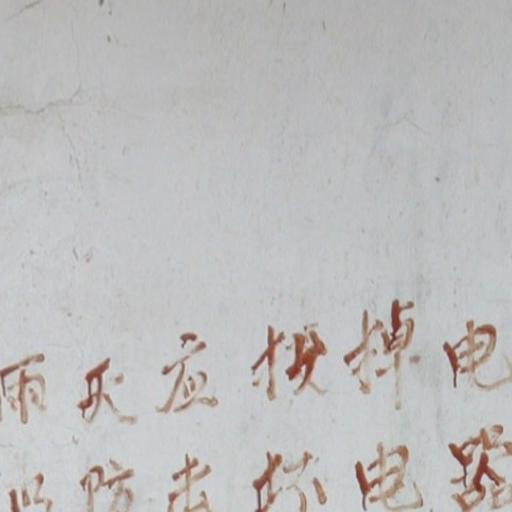 雨天应拔掉电
以防击坏电器